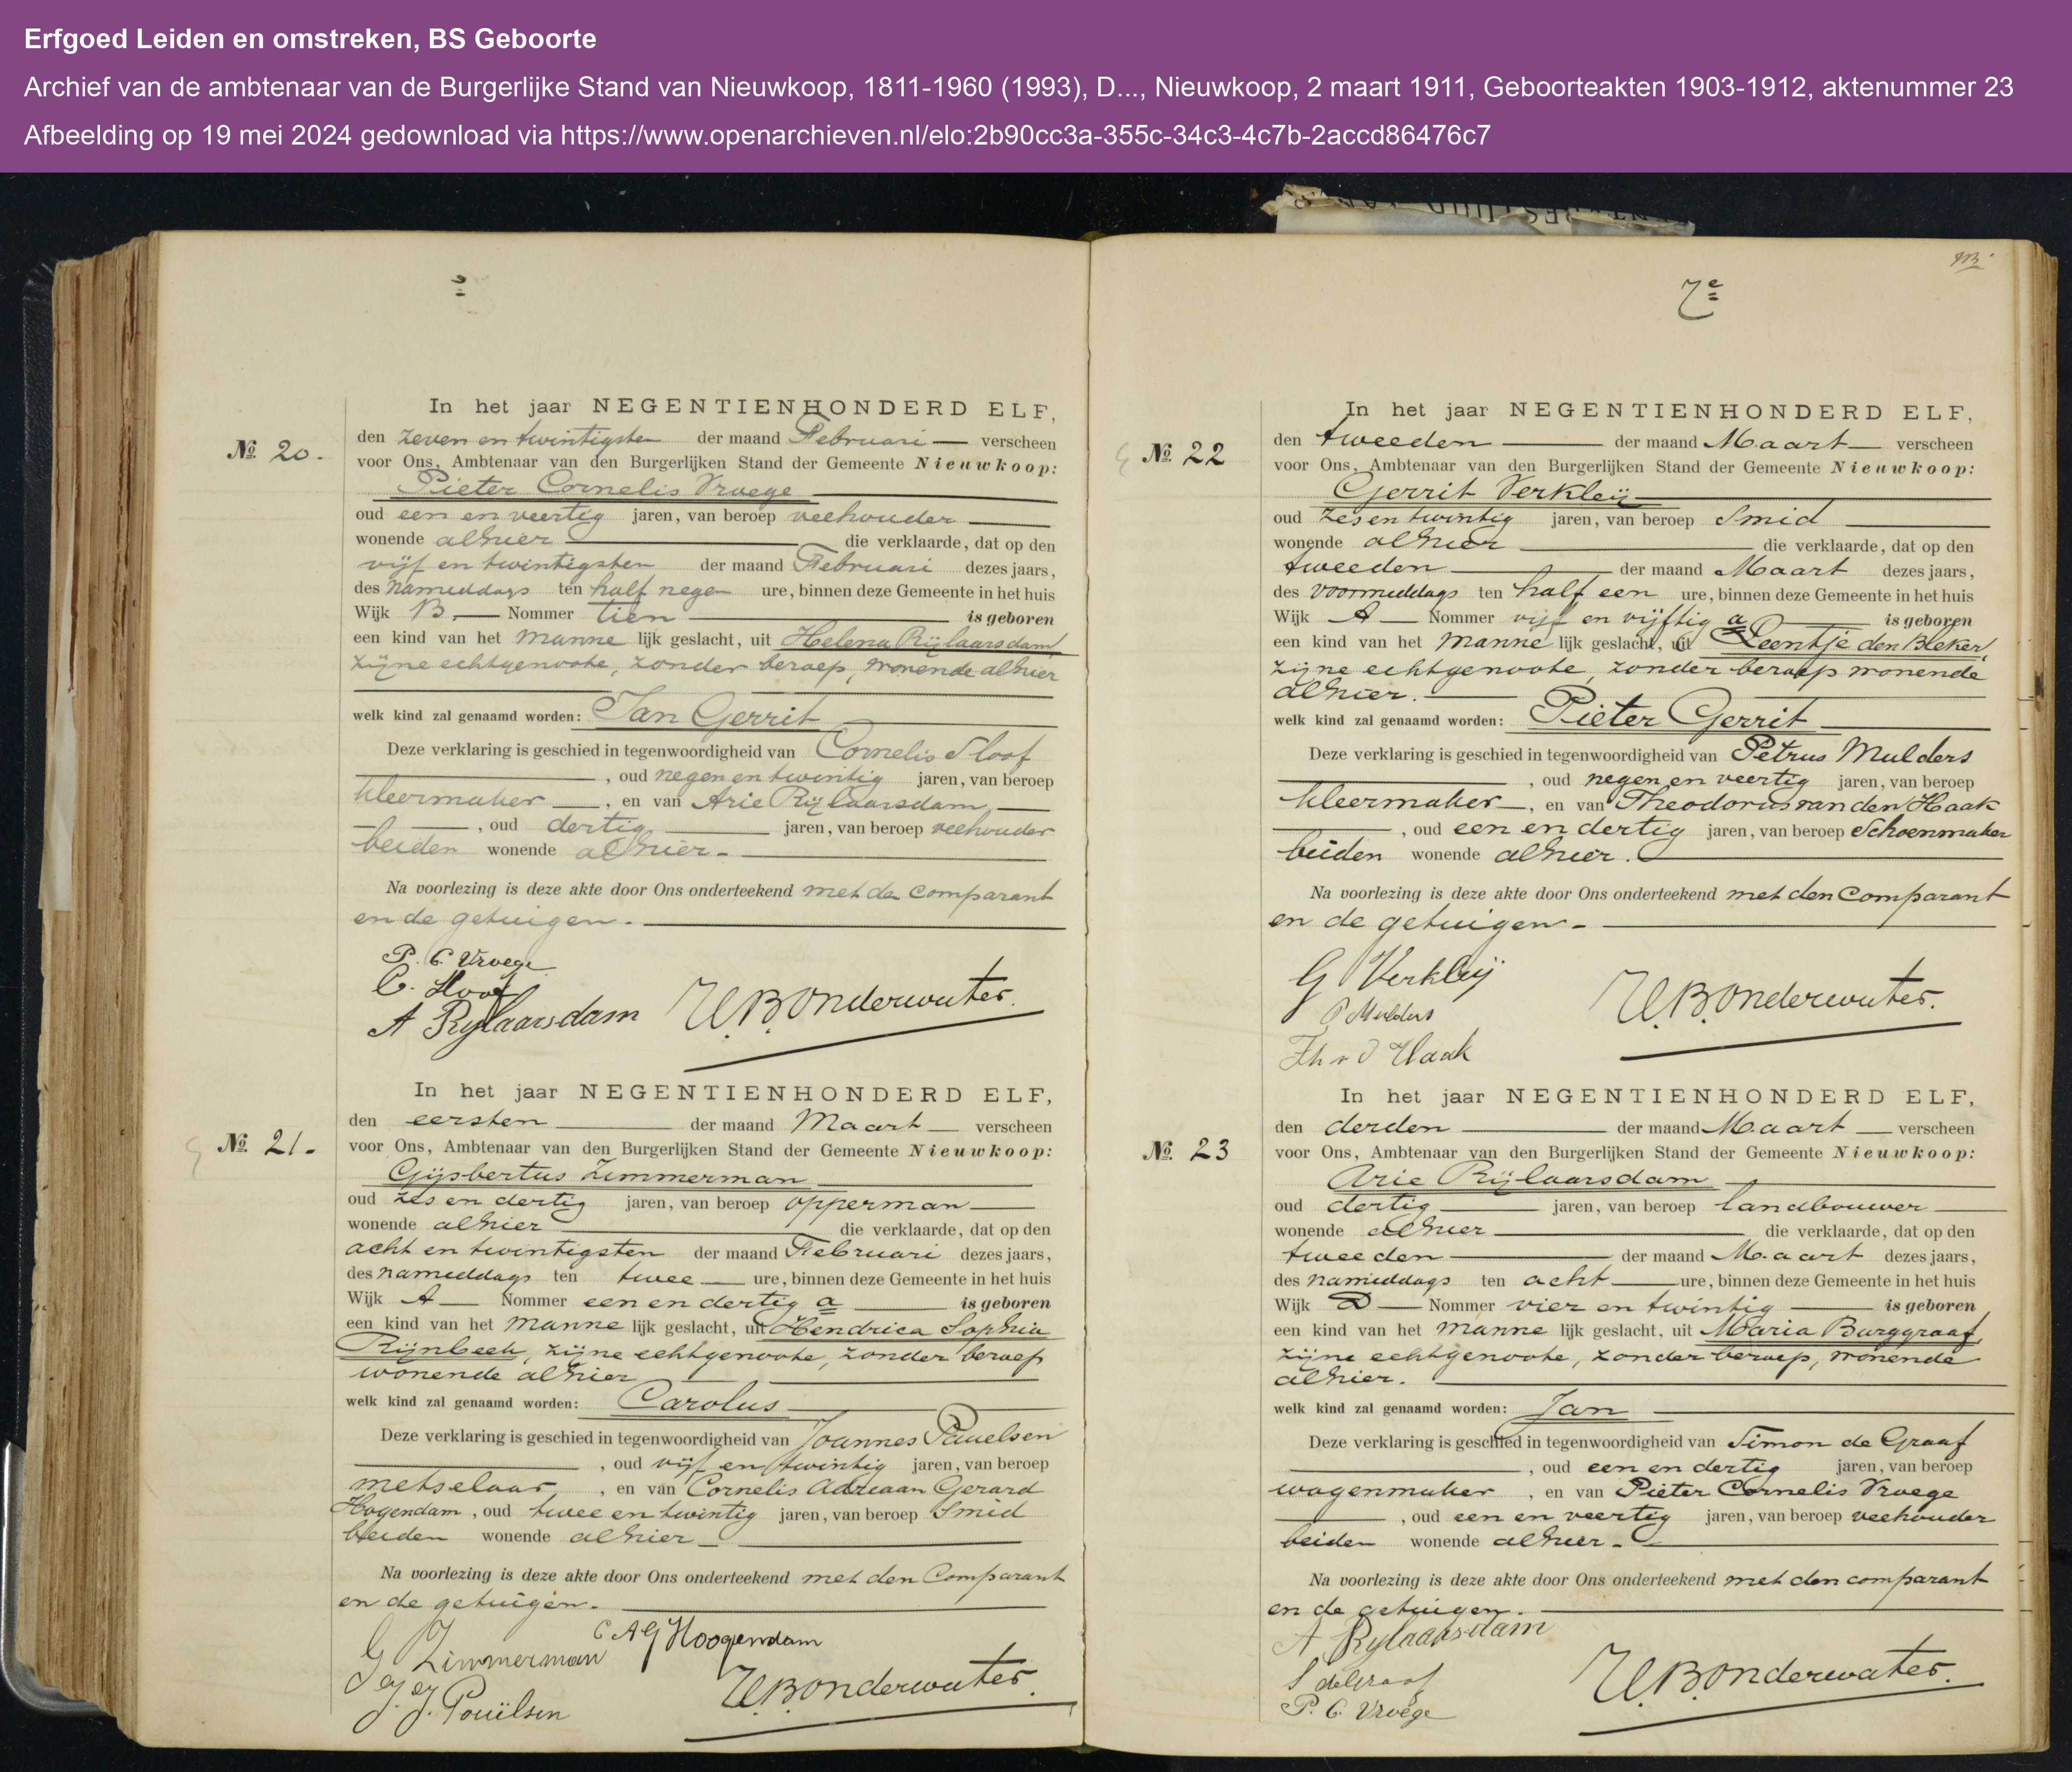 Erfgoed Leiden en omstreken, BS Geboorte
Archief van de ambtenaar van de Burgerlijke Stand van Nieuwkoop, 1811-1960 (1993), D..., Nieuwkoop, 2 maart 1911, Geboorteakten 1903-1912, aktenummer 23
Afbeelding op 19 mei 2024 gedownload via https://www.openarchieven.nl/elo:2b90cc3a-355c-34c3-4c7b-2accd86476c7
In het jaar NEGENTIENHONDERD ELF,
№ 20.
den zeven en twintigsten der maand Februari verscheen
voor Ons, Ambtenaar van den Burgerlijken Stand der Gemeente Nieuwkoop:
Pieter Cornelis Vroege
oud een en veertig jaren, van beroep veehouder
wonende alhier die verklaarde, dat op den
vijf en twintigsten der maand Februari dezes jaars,
des nameddags ten half negen ure, binnen deze Gemeente in het huis
Wijk B Nommer tien is geboren
een kind van het manne lijk geslacht, uit Helena Rijlaarsdam
zijne echtgenoote, zonder beroep, wonende alhier
welk kind zal genaamd worden: Jan Gerrit
Deze verklaring is geschied in tegenwoordigheid van Cornelis Sloof
, oud negen en twintig jaren, van beroep
kleermaker, en van Arie Rijlaarsdam,
, oud dertig jaren, van beroep veehouder
beiden wonende alhier.
Na voorlezing is deze akte door Ons onderteekend met den comparant
en de getuigen.
P. C. Vroege
C. Sloof
A Rylaarsdam W.B.Onderwater.
In het jaar NEGENTIENHONDERD ELF,
№ 21.
den eersten der maand Maart verscheen
voor Ons, Ambtenaar van den Burgerlijken Stand der Gemeente Nieuwkoop:
Gijsbertus Zimmerman
oud zes en dertig jaren, van beroep opperman
wonende alhier die verklaarde, dat op den
acht en twintigsten der maand Februari dezes jaars,
des nameddags ten twee ure, binnen deze Gemeente in het huis
Wijk A Nommer een en dertig a is geboren
een kind van het manne lijk geslacht, uit Hendrica Sophia
Rijnbeek, zijne echtgenoote, zonder beroep
wonende alhier
welk kind zal genaamd worden: Carolus
Deze verklaring is geschied in tegenwoordigheid van Joannes Pauelsen
, oud vijf en twintig jaren, van beroep
metselaar, en van Cornelis Adriaan Gerard
Hogendam, oud twee en twintig jaren, van beroep Smid
beiden wonende alhier
Na voorlezing is deze akte door Ons onderteekend met den Comparant
en de getuigen.
G Zimmerman C A G Hoogendam
J. Pouïlsen W.B.Onderwater.
7e
In het jaar NEGENTIENHONDERD ELF,
№ 22
den tweeden der maand Maart verscheen
voor Ons, Ambtenaar van den Burgerlijken Stand der Gemeente Nieuwkoop:
Gerrit Verkleij
oud zes en twintig jaren, van beroep Smid
wonende alhier die verklaarde, dat op den
tweeden der maand Maart dezes jaars,
des voormeddags ten half een ure, binnen deze Gemeente in het huis
Wijk A Nommer vijf en vijftig a is geboren
een kind van het manne lijk geslacht, uit Leentje den Bleker,
zijne echtgenoote, zonder beroep wonende
alhier.
welk kind zal genaamd worden: Pieter Gerrit
Deze verklaring is geschied in tegenwoordigheid van Petrus Mulders
, oud negen en veertig jaren, van beroep
kleermaker, en van Theodorus van den Haak
, oud een en dertig jaren, van beroep Schoenmaker
beiden wonende alhier.
Na voorlezing is deze akte door Ons onderteekend met den Comparant
en de getuigen.
G Verkleij
P Mulders W.B.Onderwater.
Th v d Haak
In het jaar NEGENTIENHONDERD ELF,
№ 23
den derden der maand Maart verscheen
voor Ons, Ambtenaar van den Burgerlijken Stand der Gemeente Nieuwkoop:
Arie Rijlaarsdam
oud dertig jaren, van beroep landbouwer
wonende alhier die verklaarde, dat op den
tweeden der maand Maart dezes jaars,
des nameddags ten acht ure, binnen deze Gemeente in het huis
Wijk D Nommer vier en twintig is geboren
een kind van het manne lijk geslacht, uit Maria Burggraaf,
zijne echtgenoote, zonder beroep, wonende
alhier.
welk kind zal genaamd worden: Jan
Deze verklaring is geschied in tegenwoordigheid van Simon de Graaf
, oud een en dertig jaren, van beroep
wagenmaker, en van Pieter Cornelis Vroege
, oud een en veertig jaren, van beroep veehouder
beiden wonende alhier.
Na voorlezing is deze akte door Ons onderteekend met den comparant
en de getuigen.
A Rylaarsdam
S de Graaf W.B.Onderwater.
P. C. Vroege